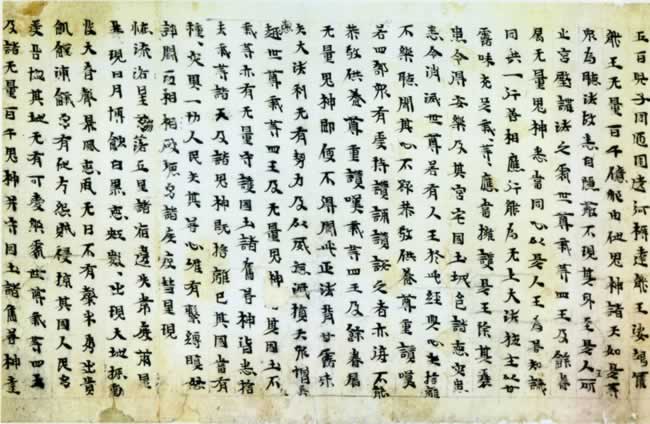 五百鬼子周匝圍遶阿耨達龍王娑竭羅
龍王无量百千億那由他鬼神諸天如是等
眾為聽法故悉自隱蔽不現其身至是人王所
止宮殿講法之處世尊我等四王及餘眷
屬无量鬼神悉當同心以是人王為善知識
同共一行善相應行能為无上大法施主以甘
露味充足我等應當擁護是王除其衰
患令得安樂及其宮宅國土城邑諸惡災患
悉令消滅世尊若有人王於此經典心生捨離
不樂聽聞其心不欲恭敬供養尊重讚嘆
若四部眾有受持讀誦講說之者亦復不能
恭敬供養尊重讚嘆我等四王及餘眷屬
无量鬼神即便不得聞此正法背甘露味
失大法利无有勢力及以威德減損天眾增長惡
趣世尊我等四王及无量鬼神捨其國土不
我等亦有无量守護國土諸舊善神皆悉捨
去我等諸天及諸鬼神既捨離已其國當有
種種災異一切人民失其善心唯有繫縛瞋恚
諍鬪互相破壞多諸疾疫彗星現
怪流星崩落五星諸宿違失常度兩日
並現日月博蝕白黑惡虹數數出現大地振動
發大音聲暴風惡雨无日不有穀米勇貴
飢饉凍餓多有他方怨賊侵掠其國人民多
受苦惱其地无有可愛樂處世尊我等四王
及諸无量百千鬼神并守國土諸舊善神遠